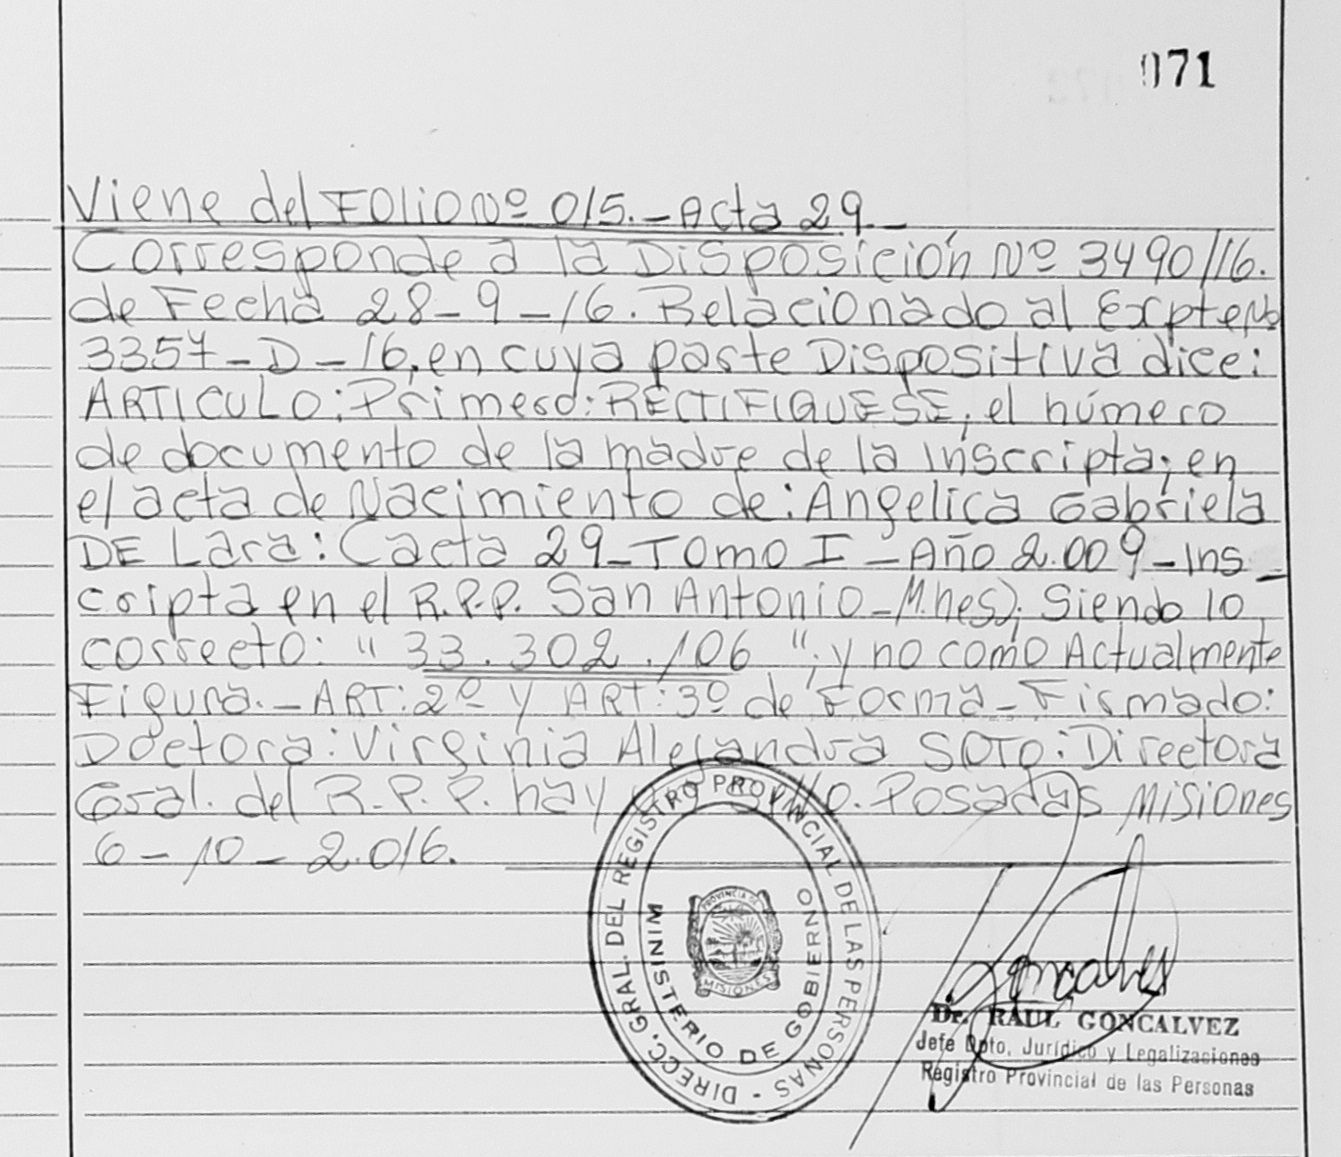 071
Viene del Folio Nº 015.- Acta 29-
Corresponde a la Disposición Nº 3490/16.
de Fecha 28-9-16. Relacionado al Expte Nº
3357-D-16, en cuya parte Dispositiva dice:
ARTICULO: Primero: RECTIFIQUESE, el número
de documento de la madre de la inscripta; en
el acta de Nacimiento de: Angelica Gabriela
DE Lara: (acta 29-Tomo I - Año 2.009-Ins-
cripta en el R.P.P. San Antonio-M.nes); Siendo lo
correcto: "33.302.106"; y no como Actualmente
Figura.- ART: 2º y ART: 3º de Forma- Firmado:
Doctora: Virginia Alejandra SOTO: Directora
Gral. del R.P.P. hay sello. Posadas Misiones
6-10-2.016.
DIRECC. GRAL. DEL REGISTRO PROVINCIAL DE LAS PERSONAS -
MINISTERIO DE GOBIERNO
PROVINCIA DE
MISIONES
Goncalves
Dr. RAUL GONCALVEZ
Jefe Dpto. Jurídico y Legalizaciones
Registro Provincial de las Personas